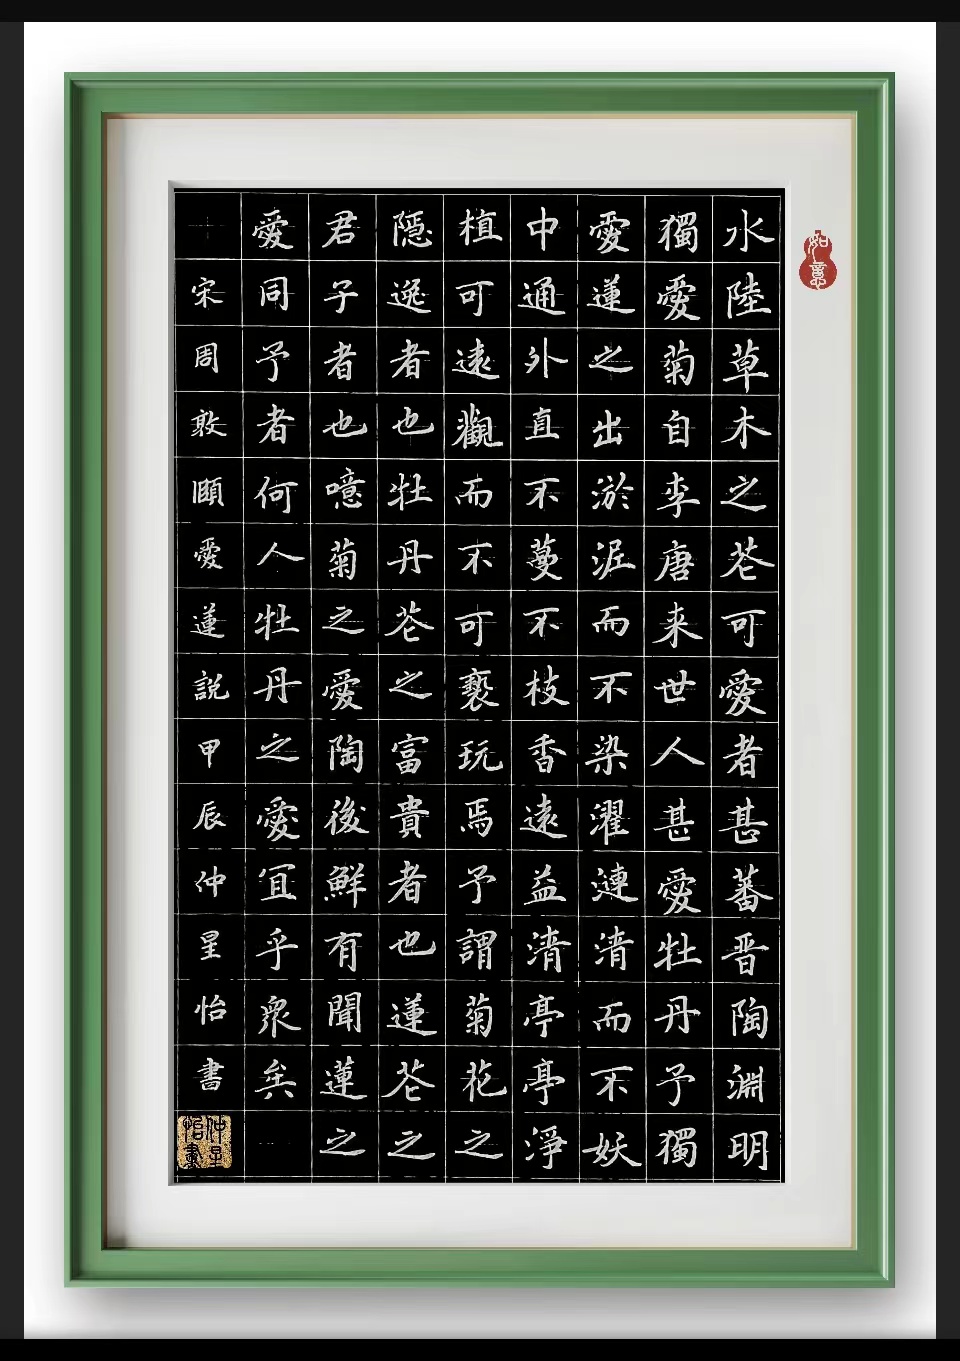 如意
水陸草木之芲可愛者甚蕃晋陶淵明
獨愛菊自李唐来世人甚愛牡丹予獨
愛蓮之出淤泥而不染濯漣清而不妖
中通外直不蔓不枝香遠益清亭亭淨
植可遠觀而不可褻玩焉予謂菊花之
隱逸者也牡丹芲之富貴者也蓮芲之
君子者也噫菊之愛陶後鮮有聞蓮之
愛同予者何人牡丹之愛宜乎衆矣
宋周敦頤愛蓮説甲辰仲星怡書
仲星怡書